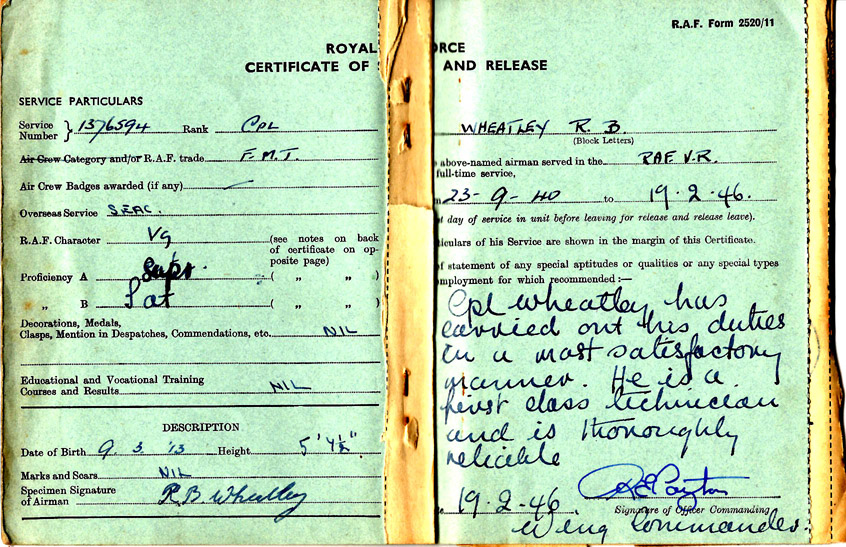 R.A.F. Form 2520/11
ROYAL
CERTIFICATE OF
SERVICE PARTICULARS
Service Number } 1376594 Rank CPL
Air Crew Category and/or R.A.F. trade F.M.T.
Air Crew Badges awarded (if any)
Overseas Service SEAC.
R.A.F. Character VG (see notes on back
of certificate on op-
posite page)
Proficiency A Supr. ( „ „ )
„ B Sat ( „ „ )
Decorations, Medals,
Clasps, Mention in Despatches, Commendations, etc. NIL
Educational and Vocational Training
Courses and Results NIL
DESCRIPTION
Date of Birth 9. 3. '13 Height 5' 4½"
Marks and Scars NIL
Specimen Signature
of Airman R.B. Wheatley
RCE
AND RELEASE
WHEATLEY R. B.
(Block Letters)
above-named airman served in the RAF V.R.
full-time service,
23-9-40 to 19.2.46.
t day of service in unit before leaving for release and release leave).
iculars of his Service are shown in the margin of this Certificate.
f statement of any special aptitudes or qualities or any special types
mployment for which recommended :—
Cpl Wheatley has
carried out his duties
in a most satisfactory
manner. He is a
first class technician
and is thoroughly
reliable
19.2.46.
Signature of Officer Commanding
Wing Commander.